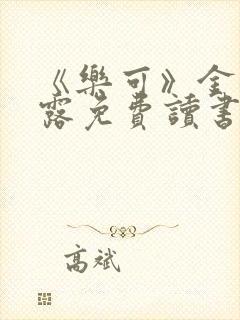 《樂可》金
露免費讀書
高斌